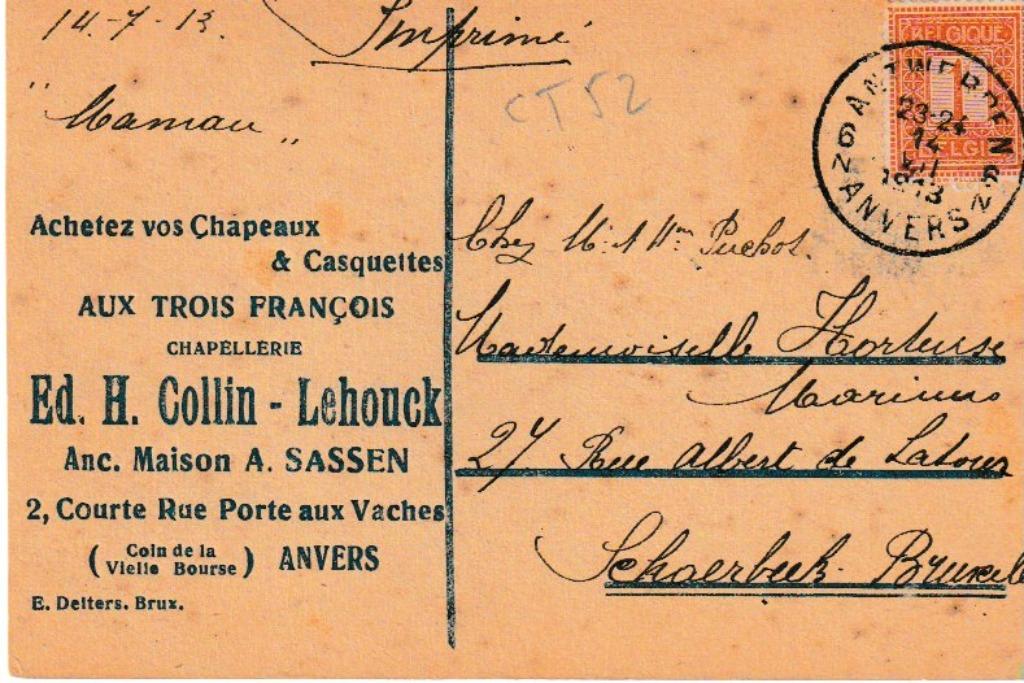 14-7-13.
Imprimé
"Maman"
CT52
BELGIQUE
1
BELGIË
ANTWERPEN
23-24
14
VII
1913
6N ANVERS N6
Achetez vos Chapeaux
& Casquettes
AUX TROIS FRANÇOIS
CHAPELLERIE
Ed. H. Collin - Lehouck
Anc. Maison A. SASSEN
2, Courte Rue Porte aux Vaches
( Coin de la
Vieille Bourse ) ANVERS
E. Delters. Brux.
Chez M. & Mme Puchot.
Mademoiselle Hortense
Marinus
27 Rue Albert de Latour
Schaerbeek. Bruxelle